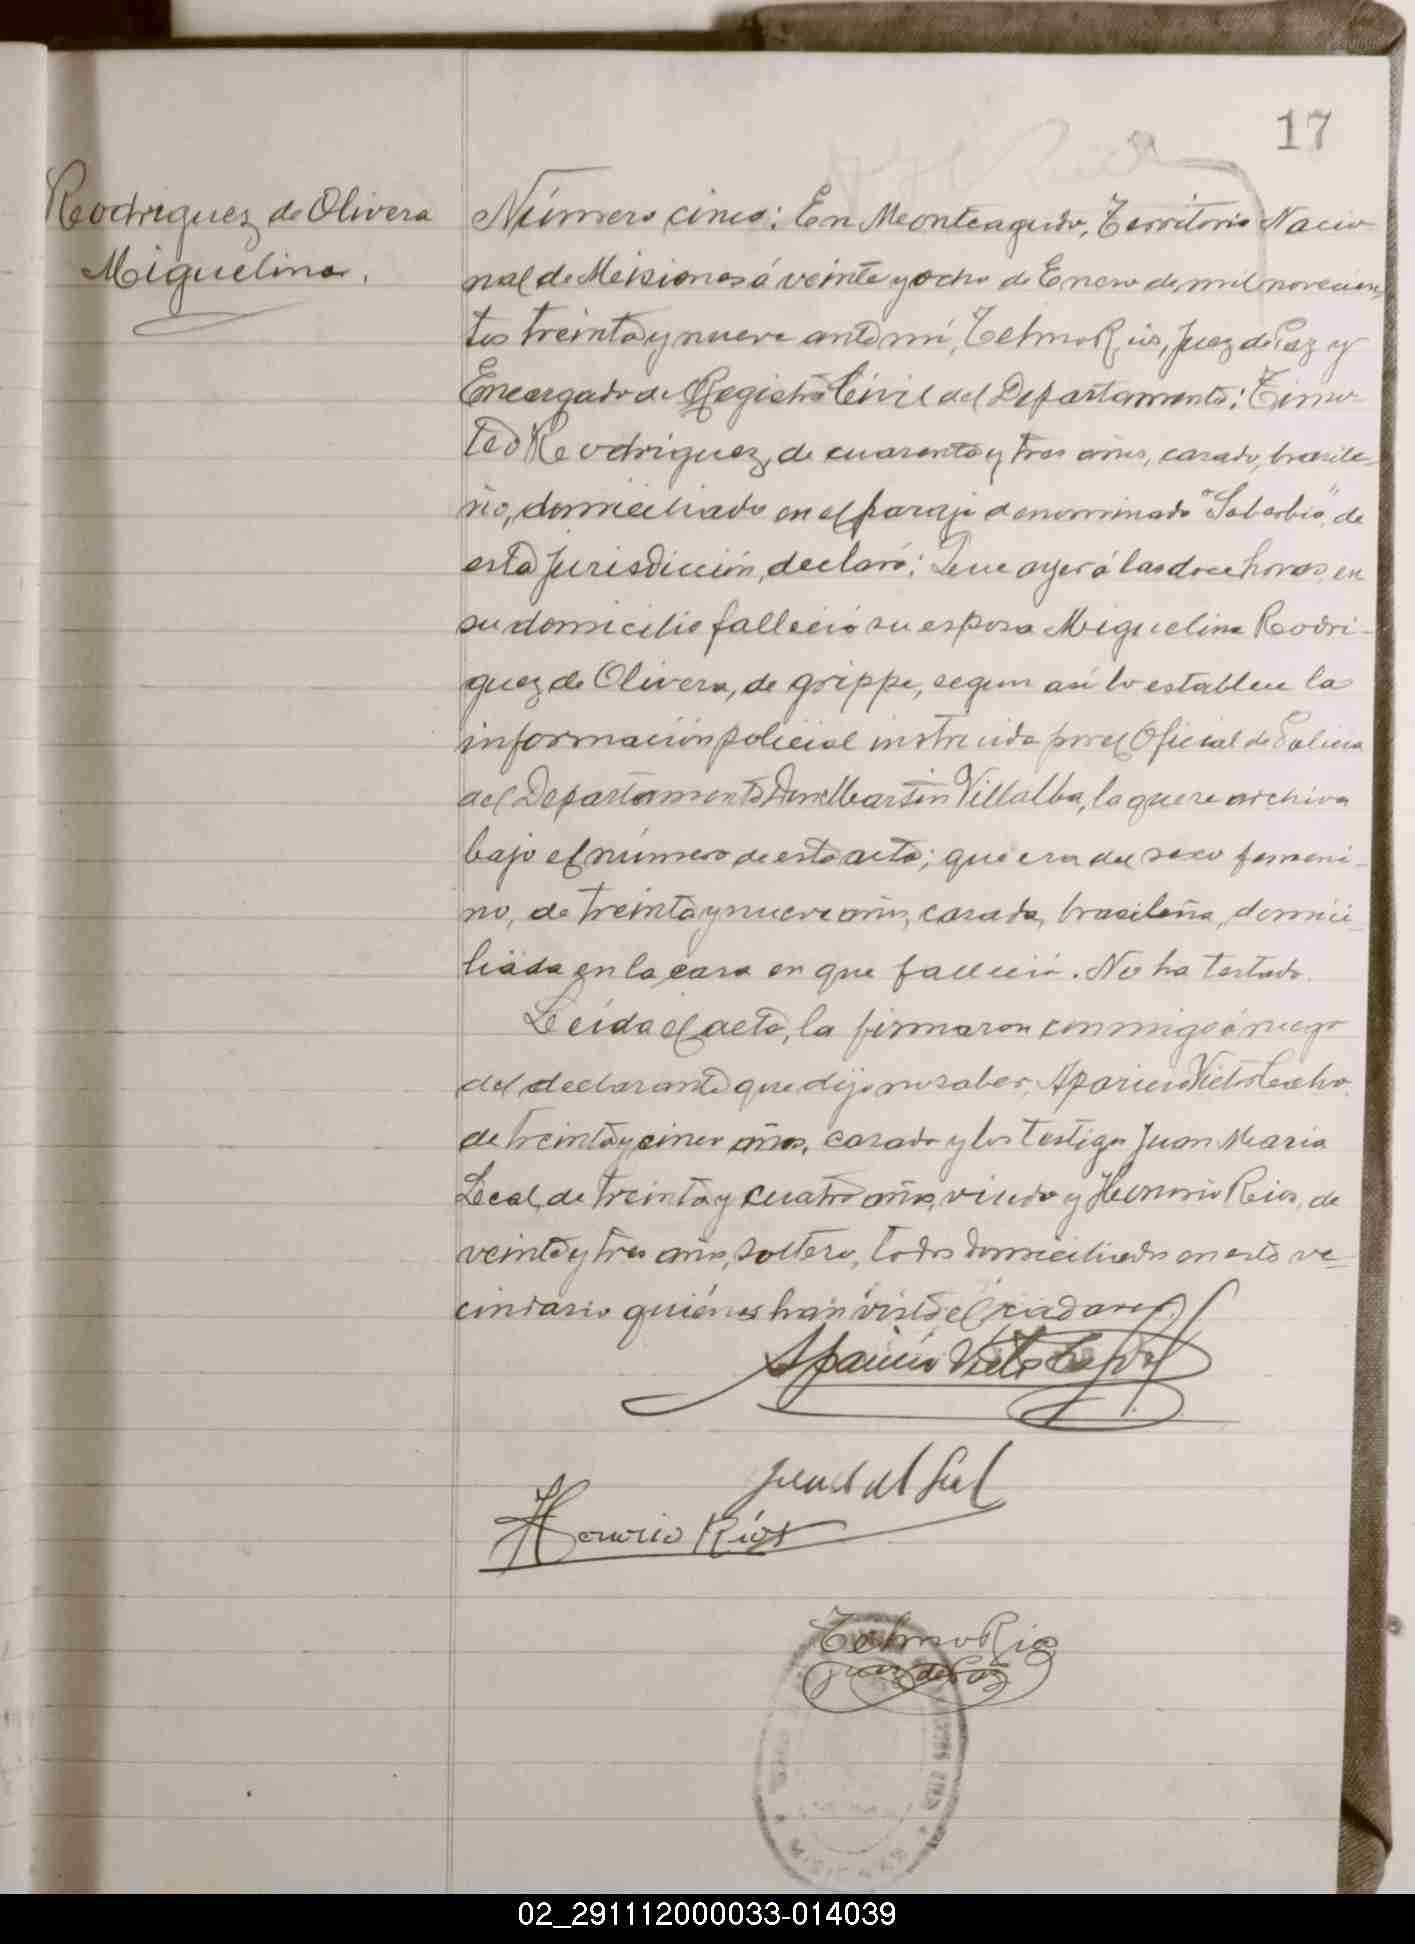 17
Rodriguez de Olivera
Miguelina.
Número cinco: En Monteagudo, Territorio Nacio-
nal de Misiones á veinte y ocho de Enero de mil novecien-
tos treinta y nueve ante mí, Telmo Rios, Juez de Paz y
Encargado de Registro Civil del Departamento: Timo-
teo Rodriguez, de cuarenta y tres años, casado, brasile-
ño, domiciliado en el paraje denominado "Soberbio", de
esta jurisdicción, declaró: Que ayer á las doce horas, en
su domicilio falleció su esposa Miguelina Rodri-
guez de Olivera, de grippe, segun así lo establece la
información policial instruida por el Oficial de Policia
del Departamento Don Martín Villalba, la que se archiva
bajo el número de esta acta; que era del sexo femeni-
no, de treinta y nueve años, casada, brasileña, domici-
liada en la casa en que falleció. No ha testado.
Leída el acta, la firmaron conmigo á ruego
del declarante que dijo no saber, Aparicio Vieto
de treinta y cinco años, casado y los testigos Juan Maria
Leal, de treinta y cuatro años, viudo y Honorio Rios, de
veinte y tres años, soltero, todos domiciliados en este ve-
cindario quiénes han visto el cadaver.
Aparicio Vieto
Juan M Leal
Honorio Ríos
Telmo Rios
Juez de Paz
02_291112000033-014039